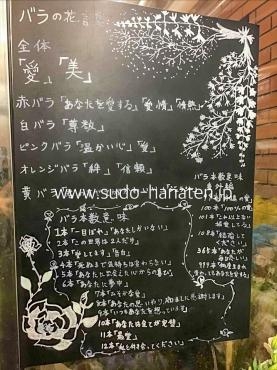 バラの花言
全体
「愛」「美」
赤バラ「あなたを愛する」「愛情」「情熱」
白バラ「尊敬」
ピンクバラ「温かい心」「愛」
オレンジバラ「絆」「信頼」
黄バラ
www.sudo-hanaten
バラ本数意味
1本「一目ぼれ」「あなたしかいない」
2本「この世界は2人だけ」
3本「愛してます」「告白」
4本「死ぬまで気持ちは変わらない」
5本「あなたに出会えた心からの喜び」
6本「あなたに夢中」
7本「ひそかな愛」
8本「あなたの思いやり、励ましに感謝します」
9本「いつもあなたを想っています」
10本「あなたは全てが完璧」
11本「最愛」
12本「私と付き合ってください」
バラ本数意味
番外編
100本「100%の愛」
101本「これ以上ない
108本「結婚して
ください」
365本「あなたが
毎日
999本